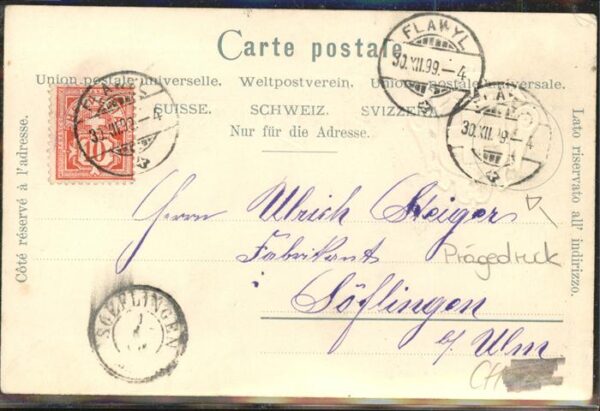 Carte postale.
Union postale universelle. Weltpostverein. Unione postale universale.
SUISSE. SCHWEIZ. SVIZZERA.
Nur für die Adresse.
Côté réservé à l'adresse.
Lato riservato all' indirizzo.
FLAWYL
30.XII.99.-4
FLAWYL
30.XII.99.-4
30.XII.99.-4
10
Herrn Ulrich Steiger
Fabrikant
Söflingen
b/ Ulm
Prägedruck
SOEFLINGEN
CH